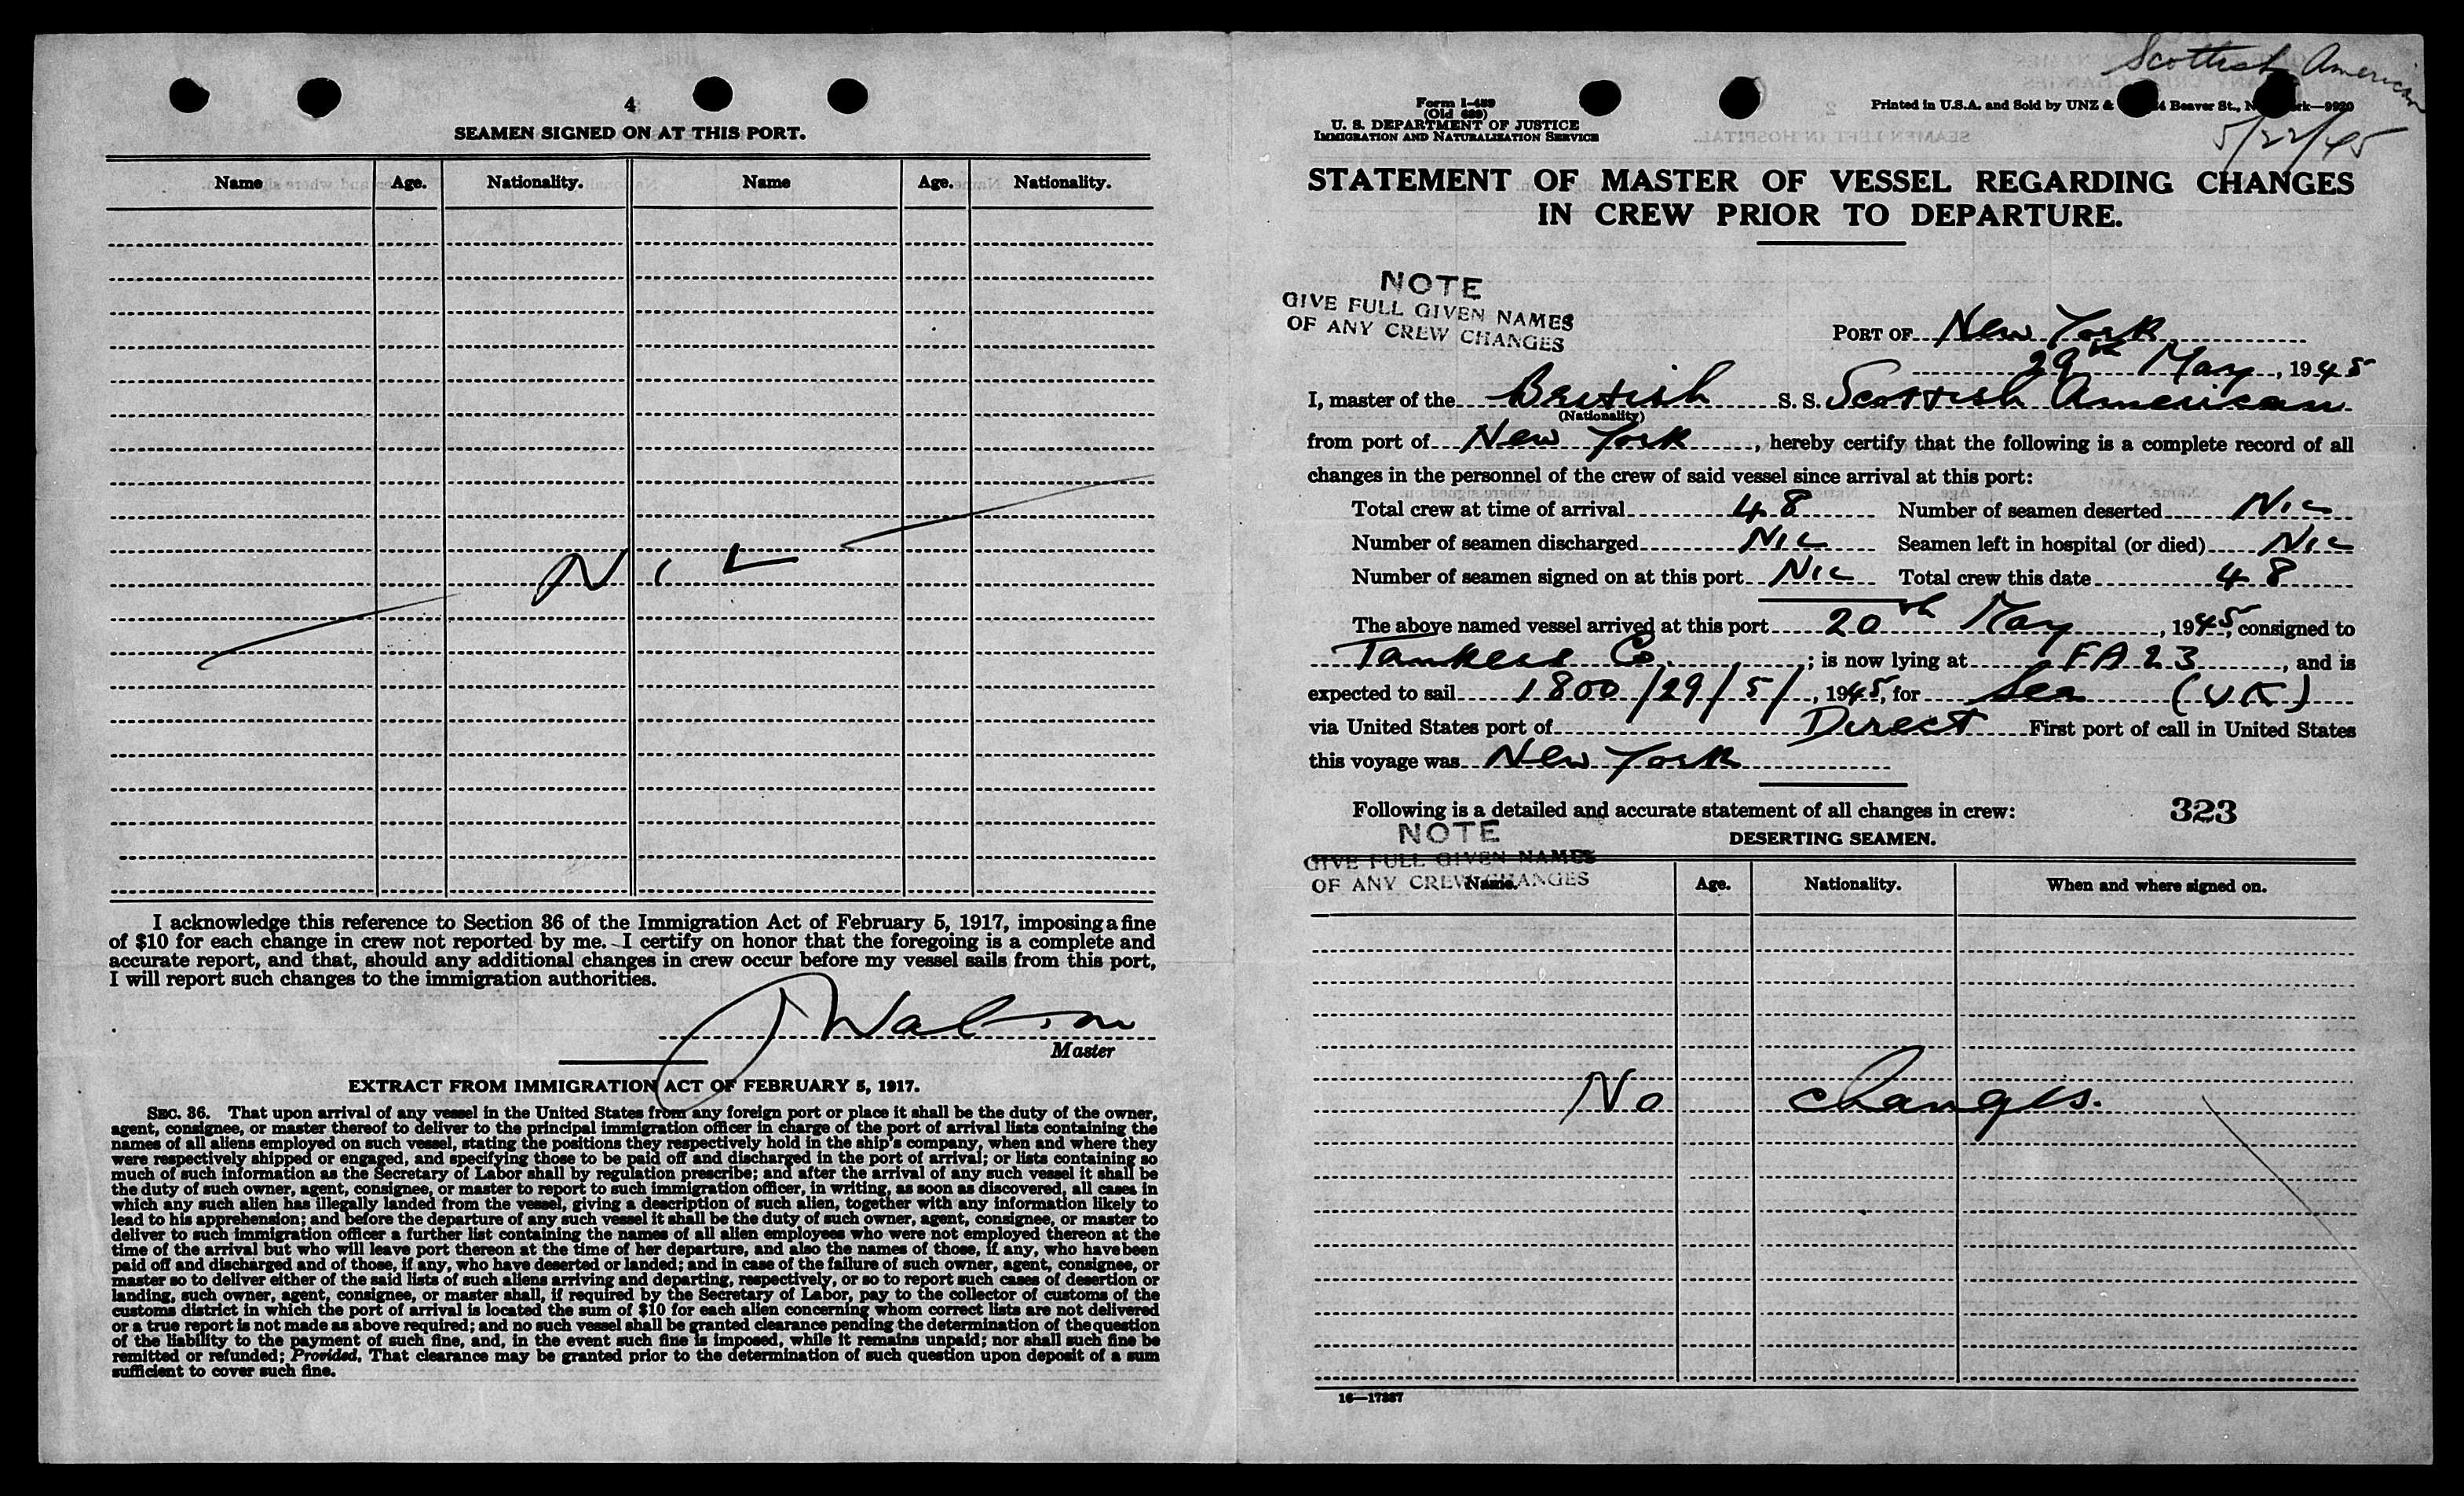 4
SEAMEN SIGNED ON AT THIS PORT.
Name Age. Nationality. Name Age. Nationality.
NIL
I acknowledge this reference to Section 36 of the Immigration Act of February 5, 1917, imposing a fine
of $10 for each change in crew not reported by me. I certify on honor that the foregoing is a complete and
accurate report, and that, should any additional changes in crew occur before my vessel sails from this port,
I will report such changes to the immigration authorities.
J Watson
Master
EXTRACT FROM IMMIGRATION ACT OF FEBRUARY 5, 1917.
SEC. 36. That upon arrival of any vessel in the United States from any foreign port or place it shall be the duty of the owner,
agent, consignee, or master thereof to deliver to the principal immigration officer in charge of the port of arrival lists containing the
names of all aliens employed on such vessel, stating the positions they respectively hold in the ship's company, when and where they
were respectively shipped or engaged, and specifying those to be paid off and discharged in the port of arrival; or lists containing so
much of such information as the Secretary of Labor shall by regulation prescribe; and after the arrival of any such vessel it shall be
the duty of such owner, agent, consignee, or master to report to such immigration officer, in writing, as soon as discovered, all cases in
which any such alien has illegally landed from the vessel, giving a description of such alien, together with any information likely to
lead to his apprehension; and before the departure of any such vessel it shall be the duty of such owner, agent, consignee, or master to
deliver to such immigration officer a further list containing the names of all alien employees who were not employed thereon at the
time of the arrival but who will leave port thereon at the time of her departure, and also the names of those, if any, who have been
paid off and discharged and of those, if any, who have deserted or landed; and in case of the failure of such owner, agent, consignee, or
master so to deliver either of the said lists of such aliens arriving and departing, respectively, or so to report such cases of desertion or
landing, such owner, agent, consignee, or master shall, if required by the Secretary of Labor, pay to the collector of customs of the
customs district in which the port of arrival is located the sum of $10 for each alien concerning whom correct lists are not delivered
or a true report is not made as above required; and no such vessel shall be granted clearance pending the determination of the question
of the liability to the payment of such fine, and, in the event such fine is imposed, while it remains unpaid; nor shall such fine be
remitted or refunded; Provided, That clearance may be granted prior to the determination of such question upon deposit of a sum
sufficient to cover such fine.
Scottish American
5/22/45
Form I-489
(Old 689)
U. S. DEPARTMENT OF JUSTICE
IMMIGRATION AND NATURALIZATION SERVICE
Printed in U.S.A. and Sold by UNZ & Beaver St., 9920
STATEMENT OF MASTER OF VESSEL REGARDING CHANGES
IN CREW PRIOR TO DEPARTURE.
NOTE
GIVE FULL GIVEN NAMES
OF ANY CREW CHANGES
PORT OF New York
29th May, 1945
I, master of the British S. S. Scottish American
(Nationality)
from port of New York, hereby certify that the following is a complete record of all
changes in the personnel of the crew of said vessel since arrival at this port:
Total crew at time of arrival 48 Number of seamen deserted NIL
Number of seamen discharged NIL Seamen left in hospital (or died) NIL
Number of seamen signed on at this port NIL Total crew this date 48
The above named vessel arrived at this port 20th May, 1945, consigned to
Tankers Co.; is now lying at FA 23, and is
expected to sail 1800/29/5/, 1945, for Sea (UK)
via United States port of Direct First port of call in United States
this voyage was New York
Following is a detailed and accurate statement of all changes in crew: 323
NOTE
GIVE FULL GIVEN NAMES
OF ANY CREW CHANGES
DESERTING SEAMEN.
Name. Age. Nationality. When and where signed on.
No changes.
16—17387